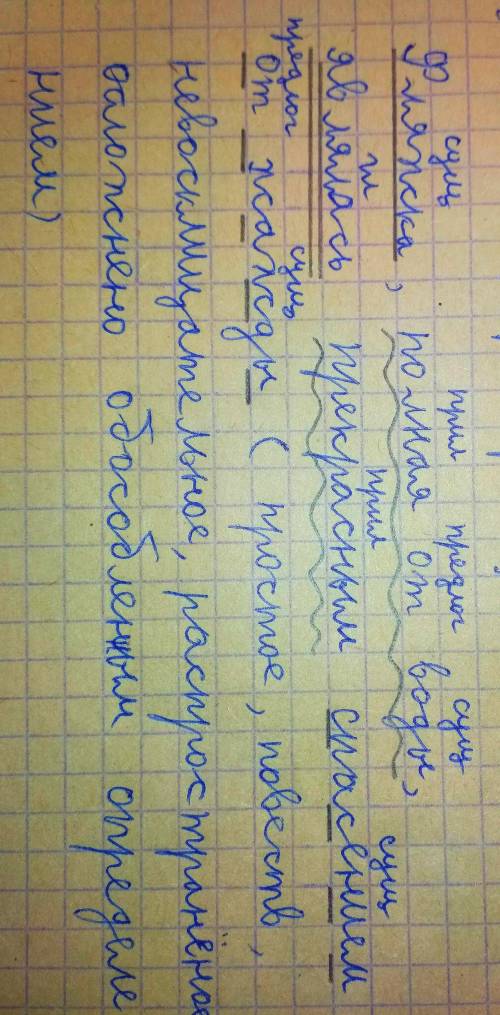 сущ прил предлог сущ
Фляжка, полная от воды,
гл прил сущ
являлась прекрасным спасением
предлог сущ
от жажды ( простое, повеств,
невосклицательное, распространёное
осложнено обособленным определе
нием)